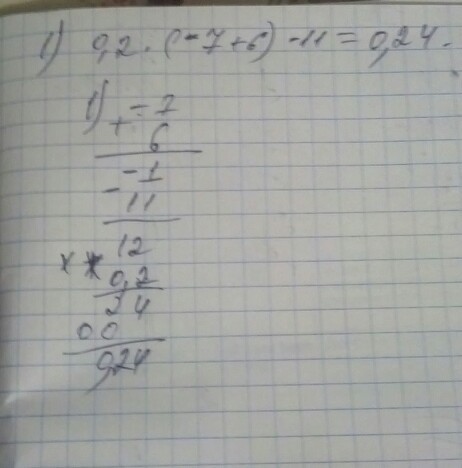 1) 0,2 · (-7+6) -11 = 0,24.
1) + -7
6
- -1
11
12
x x 0,2
24
00
0,24